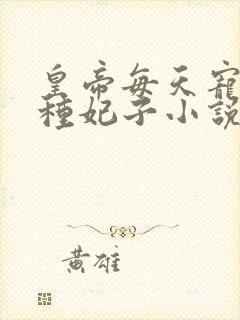 皇帝每天寵
種妃子小說
黃雄